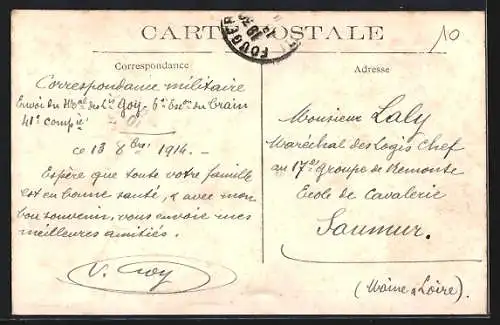 CARTE POSTALE
10
FOUGER
Correspondance
Adresse
Correspondance militaire
Envoi du Mal des Lis Goy - 6e Esc. du train
41e compie
ce 13 8bre 1914. -
Espère que toute votre famille
est en bonne santé, & avec mon
bon souvenir, vous envoie mes
meilleures amitiés.
V. Goy
Monsieur Laly
Maréchal des Logis chef
au 17e groupe de Remonte
Ecole de Cavalerie
Saumur.
(Maine & Loire).